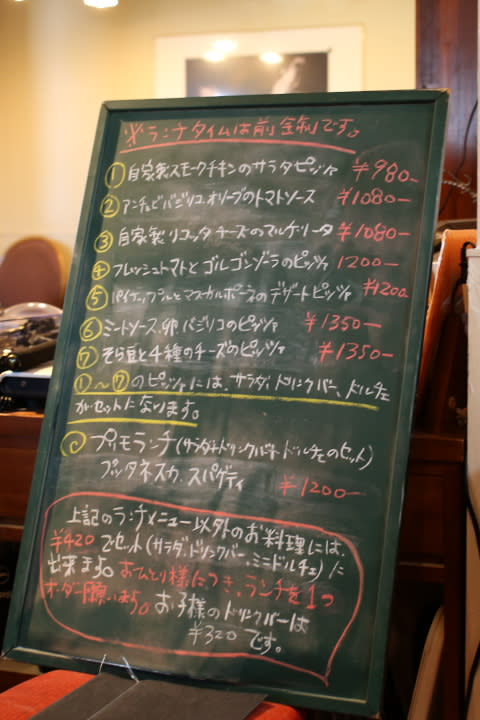 ※ランチタイムは前金制です。
① 自家製スモークチキンのサラダピッツァ ¥980-
② アンチョビバジリコ、オリーブのトマトソース ¥1080-
③ 自家製リコッタチーズのマルゲリータ ¥1080-
④ フレッシュトマトとゴルゴンゾーラのピッツァ 1200-
⑤ パイナップルとマスカルポーネのデザートピッツァ ¥1200.
⑥ ミートソース、卵、バジリコのピッツァ ¥1350-
⑦ そら豆と4種のチーズのピッツァ ¥1350-
①〜⑦のピッツァには、サラダ、ドリンクバー、ドルチェ
がセットになります。
プリモランチ(サラダ+ドリンクバー+ドルチェのセット)
プッタネスカ、スパゲティ ¥1200-
上記のランチメニュー以外のお料理には、
¥420でセット(サラダ、ドリンクバー、ミニドルチェ)に
出来ます。おひとり様につき、ランチを1つ
オーダー願います。お子様のドリンクバーは
¥320です。